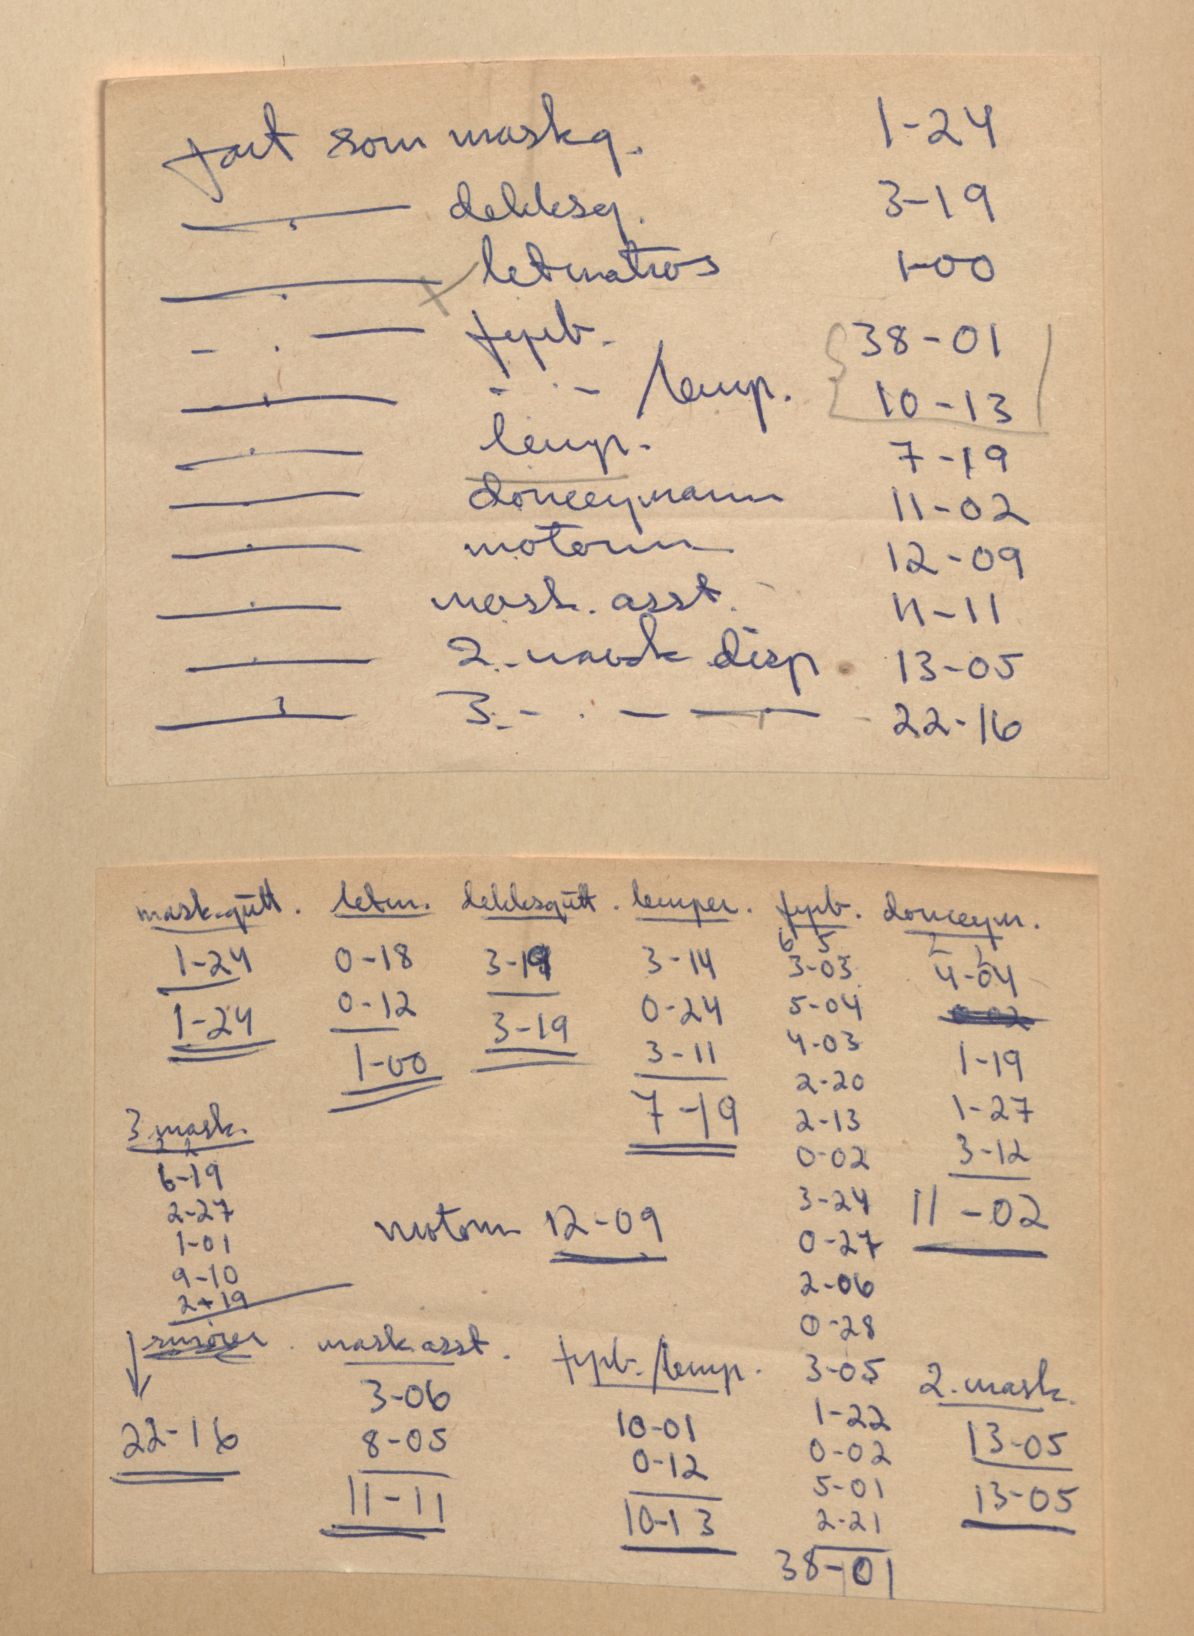 fart som maskg. 1-24
— " — dekksg. 3-19
— " — letmatros 1-00
- " — fyrb. 38-01
— " — - " - /lemp. 10-13
— " — lemp. 7-19
— " — donkeymann 11-02
— " — motorm 12-09
— " — mask. asst. 11-11
— " — 2. mask disp 13-05
— " — 3. - " — — 22-16
mask.gutt.
1-24
1-24
letm.
0-18
0-12
1-00
dekksgutt.
3-19
3-19
lemper.
3-14
0-24
3-11
7-19
fyrb.
6 5
3-03
5-04
4-03
2-20
2-13
0-02
3-24
0-27
2-06
0-28
3-05
1-22
0-02
5-01
2-21
38-01
donkeym.
2 2
4-04
0-02
1-19
1-27
3-12
11-02
3 mask.
2 2
6-19
2-27
1-01
9-10
2-19
22-16
motorm 12-09
mask asst.
3-06
8-05
11-11
fyrb./lemp.
10-01
0-12
10-13
2. mask.
13-05
13-05